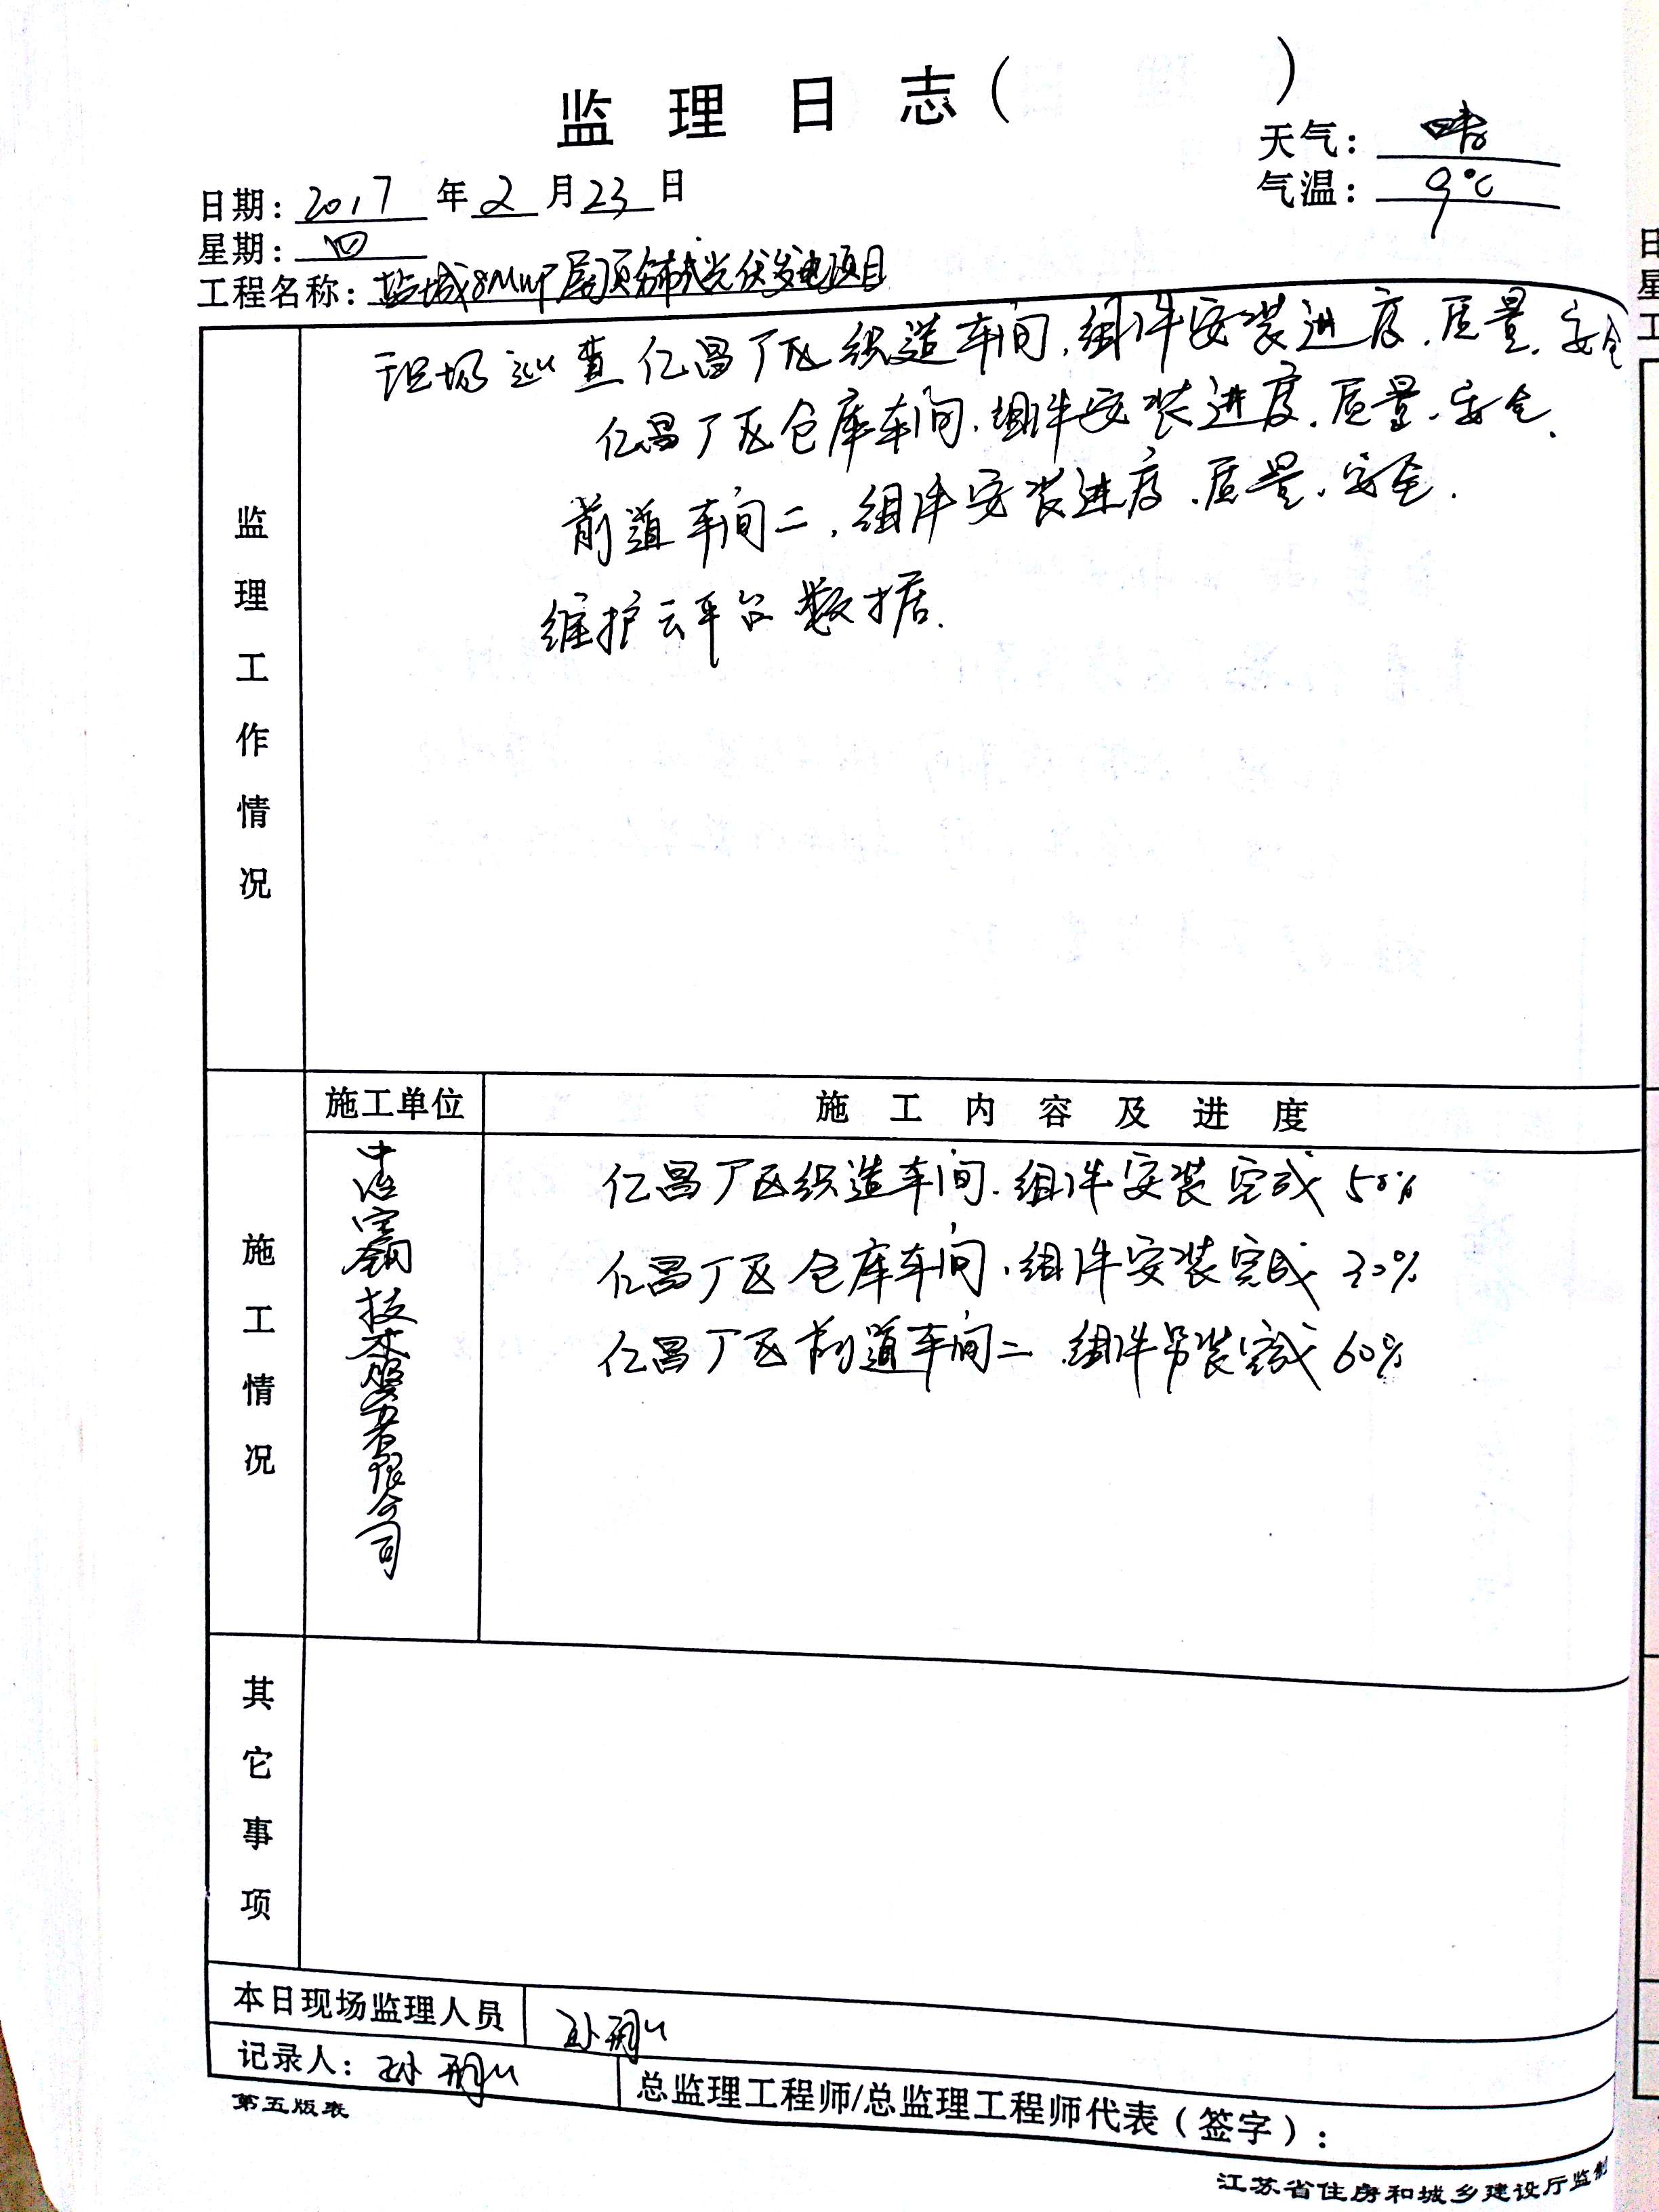 监理日志（ ）
天气：晴
日期：2017年2月23日
气温：9℃
星期：四
工程名称：盐城8MWP屋顶分布式光伏发电项目
监理工作情况
现场巡查仁昌厂区织造车间，组件安装进度，质量，安全
仁昌厂区仓库车间，组件安装进度，质量，安全。
前道车间二，组件安装进度，质量，安全。
维护云平台数据.
施工情况
施工单位
施工内容及进度
中冶宝钢技术服务有限公司
仁昌厂区织造车间，组件安装完成50%
仁昌厂区仓库车间，组件安装完成30%
仁昌厂区前道车间二 组件吊装完成60%
其它事项
本日现场监理人员 孙
记录人：孙
总监理工程师/总监理工程师代表（签字）：
第五版表
江苏省住房和城乡建设厅监制
日
星
工